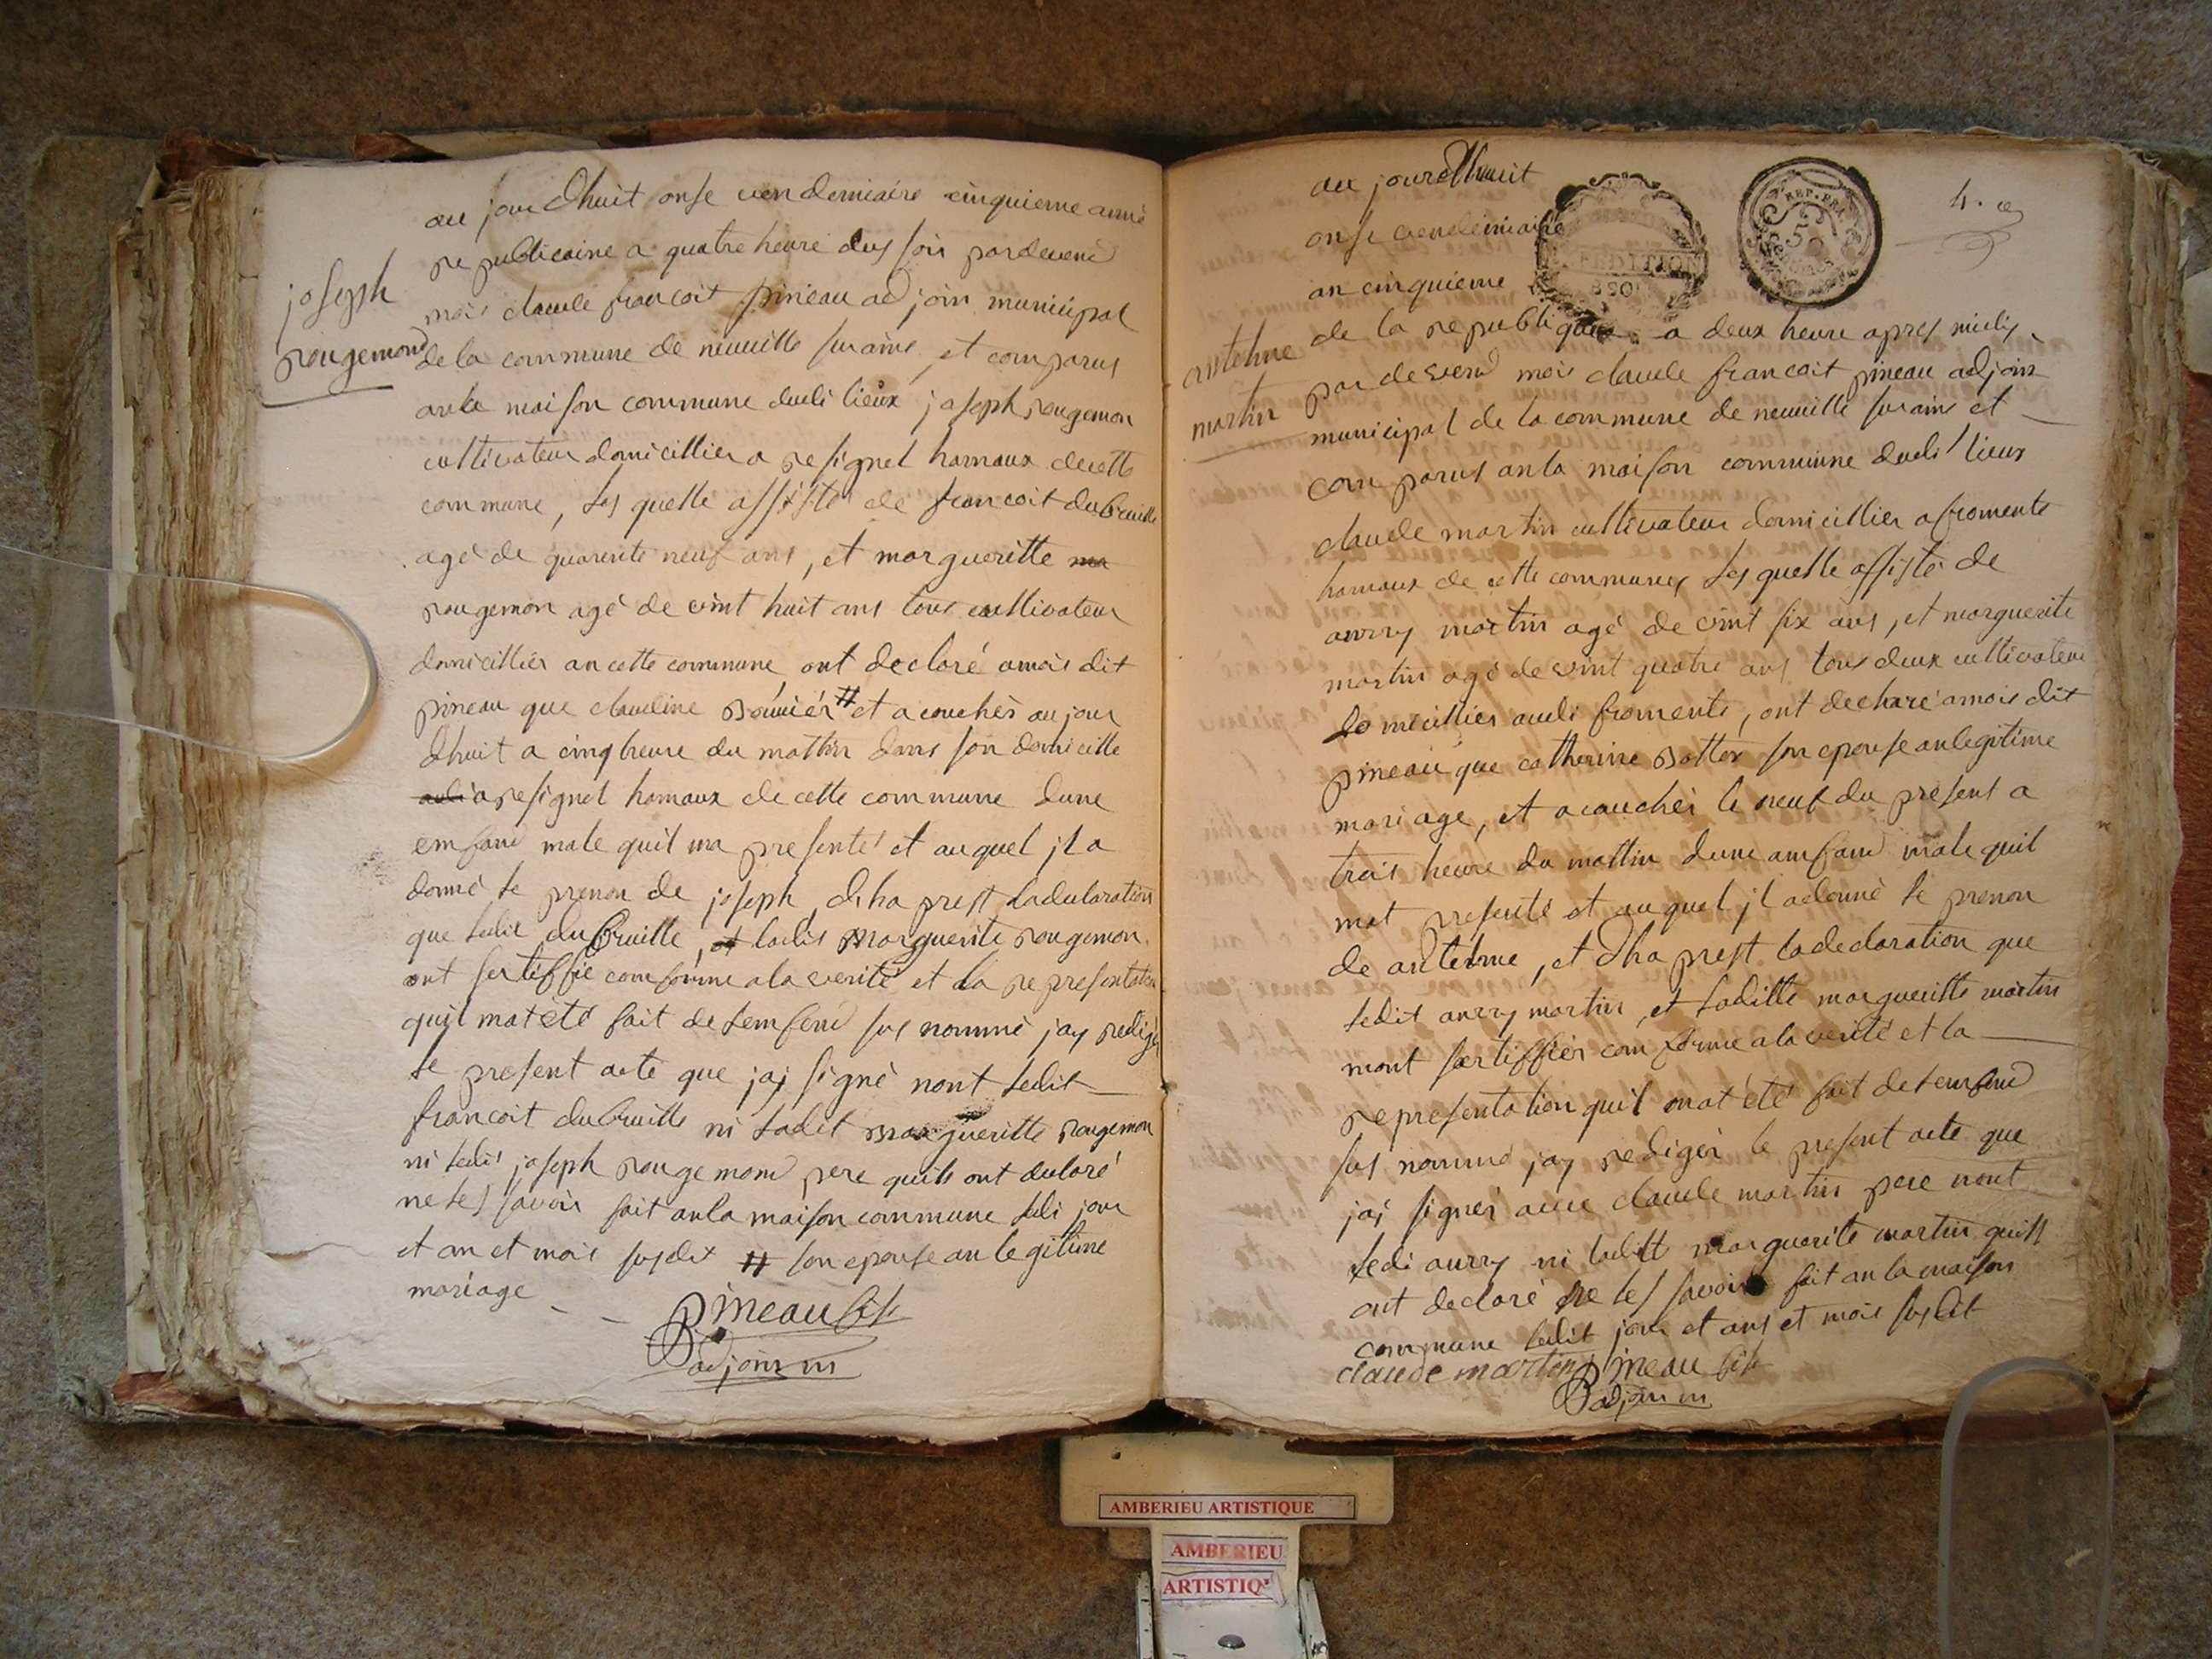 joseph
rougemond
au jour dhuit onse vendemiaire cinquieme anné
republicaine a quatre heure dus soir pardevend
moi claude francoit pineau adjoin municipal
de la commune de neuville surains et comparus
anla maison commune dudi lieux joseph rougemon
cultivateur domicillier a resignel hamaux de cette
commune, les quelle assisté de francoit dubruille
agé de quarente neuf ans, et margueritte ma
rougemon agé de vint huit ans tous cultivateur
domicillier an cette commune ont declaré amoi dit
pineau que claudine # et acouchés au jour
dhuit a cinq heure du mattin dans son domicille
audi a resignel hamaux de cette commune dune
emfand male quil ma presenté et auquel jl a
donné le prenon de joseph, diha prest ladularation
que ledit dubruille, et ladit Marguerite rougemon
ont sertiffie comforme ala verité et la representation
quil mat été fait de lemfend sus nommé jay redigé
le present acte que jaj signé nont ledit
francoit dubruille ni ladit margueritte rougemon
ni ledit joseph rougemond pere quils ont dularé
ne les savoir fait anla maison commune ledi jour
et an et moi susdit # son epouse an legitime
mariage
pineau fils
adjoin m
4.
REP. FRA.
antelme
martin
au jourdhuit
onse vendemiaire
an cinquieme
de la republique a deux heure apres midis
pardevend moi claude francoit pineau adjoin
municipal de la commune de neuville surains et
comparus anla maison commune dudi lieux
claude martin cultivateur domicillier a fromente
hamaux de cette communes les quelle assisté de
aurry martin agé de vint six ans, et marguerite
martin agé de vint quatre ans tous deux cultivateur
domicillier audi fromente, ont decharé amoi dit
pineau que catherine son epouse anlegitime
mariage, et acouchéi le neuf du present a
trois heure du mattin dune amfand male quil
mat presenté et auquel jl adonné le prenon
de antelme, et dha prest ladedaration que
ledit aurry martin, et ladille margueritte martin
mont sertiffier comforme ala verité et la
representation quil mat été fait de lemfend
sus nommé jay rediger le present acte que
jaj signer avec claude martin pere nont
ledi aurry ni ladill marguerite martin quill
ont declaré ne les savoir fait anla maison
commune ledit jour et ans et moi susdit
claude martin pineau fils
adjoin m
AMBERIEU ARTISTIQUE
AMBERIEU
ARTISTIQ